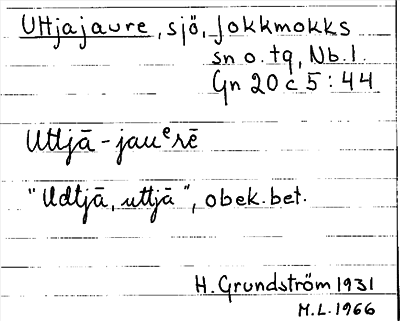 Uttjajaure, sjö, Jokkmokks
sn o. tg, Nb. l.
Gn 20 c 5 : 44
Uttjā - jauᵉrē
"Udtjā, uttjā", obek. bet.
H. Grundström 1931
M.L. 1966